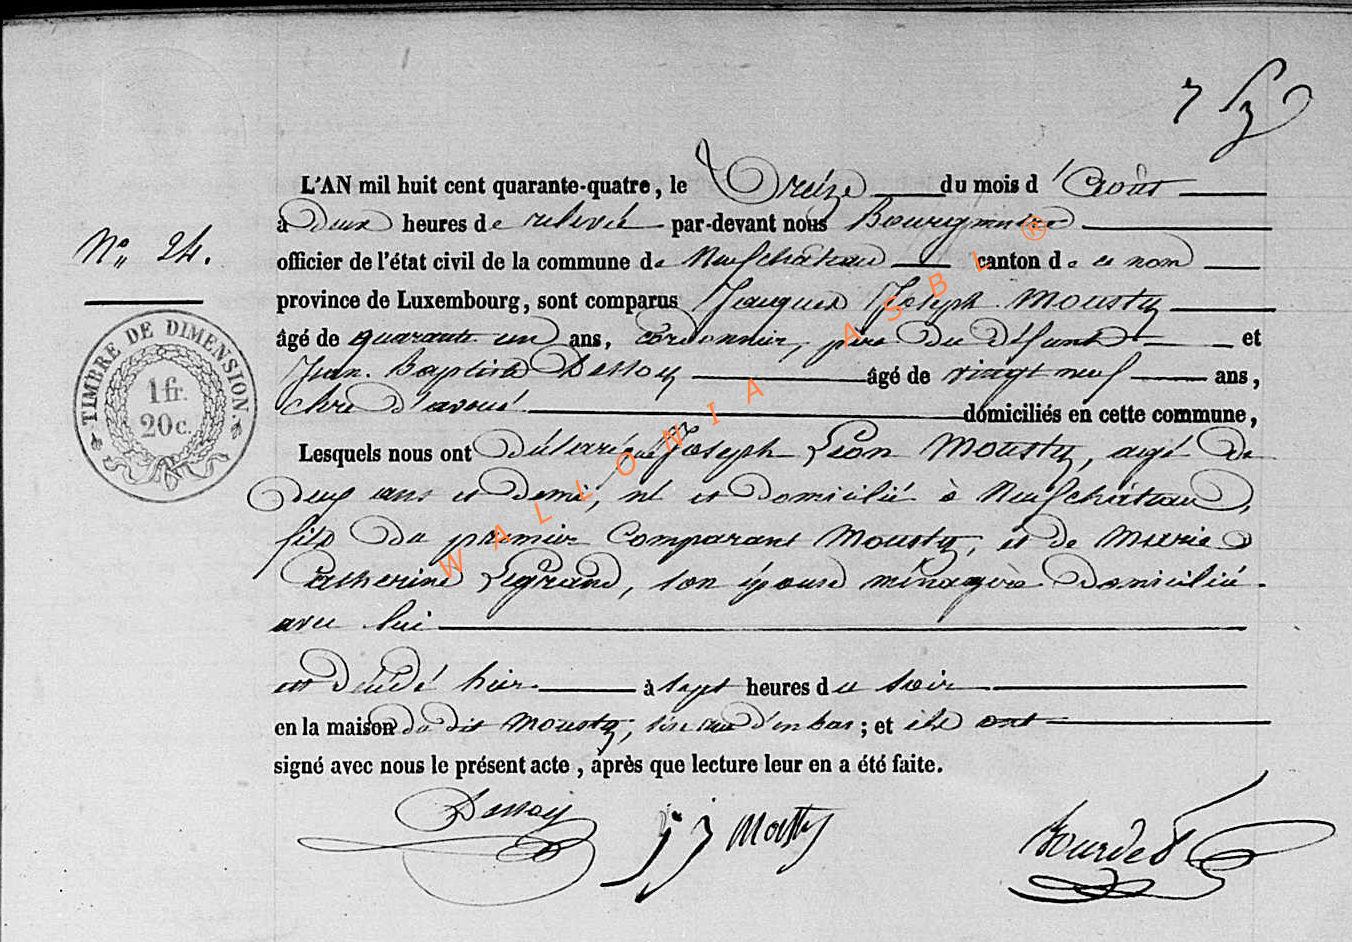 L'AN mil huit cent quarante-quatre, le Treize du mois d'Août
à Deux heures de relevée par-devant nous Bourgmestre
N° 24.
officier de l'état civil de la commune de Neufchâteau canton de ce nom
province de Luxembourg, sont comparus Jacques Joseph Mousty
âgé de quarante un ans, cordonnier, père du défunt et
Jean Baptiste Dessoy âgé de vingt neuf ans,
clerc d'avoué domiciliés en cette commune,
TIMBRE DE DIMENSION.
1 fr.
20 c.
Lesquels nous ont déclaré que Joseph Léon Mousty, agé de
deux ans et demi, né et domicilié à Neufchâteau,
fils du premier Comparant Mousty, et de Marie
Catherine Legrand, son épouse ménagère domiciliée
avec lui
est décédé hier à sept heures du soir
en la maison du dit Mousty, d'en bas ; et ils ont
signé avec nous le présent acte, après que lecture leur en a été faite.
Dessoy JJ Mousty
WALLONIA ASBL ®